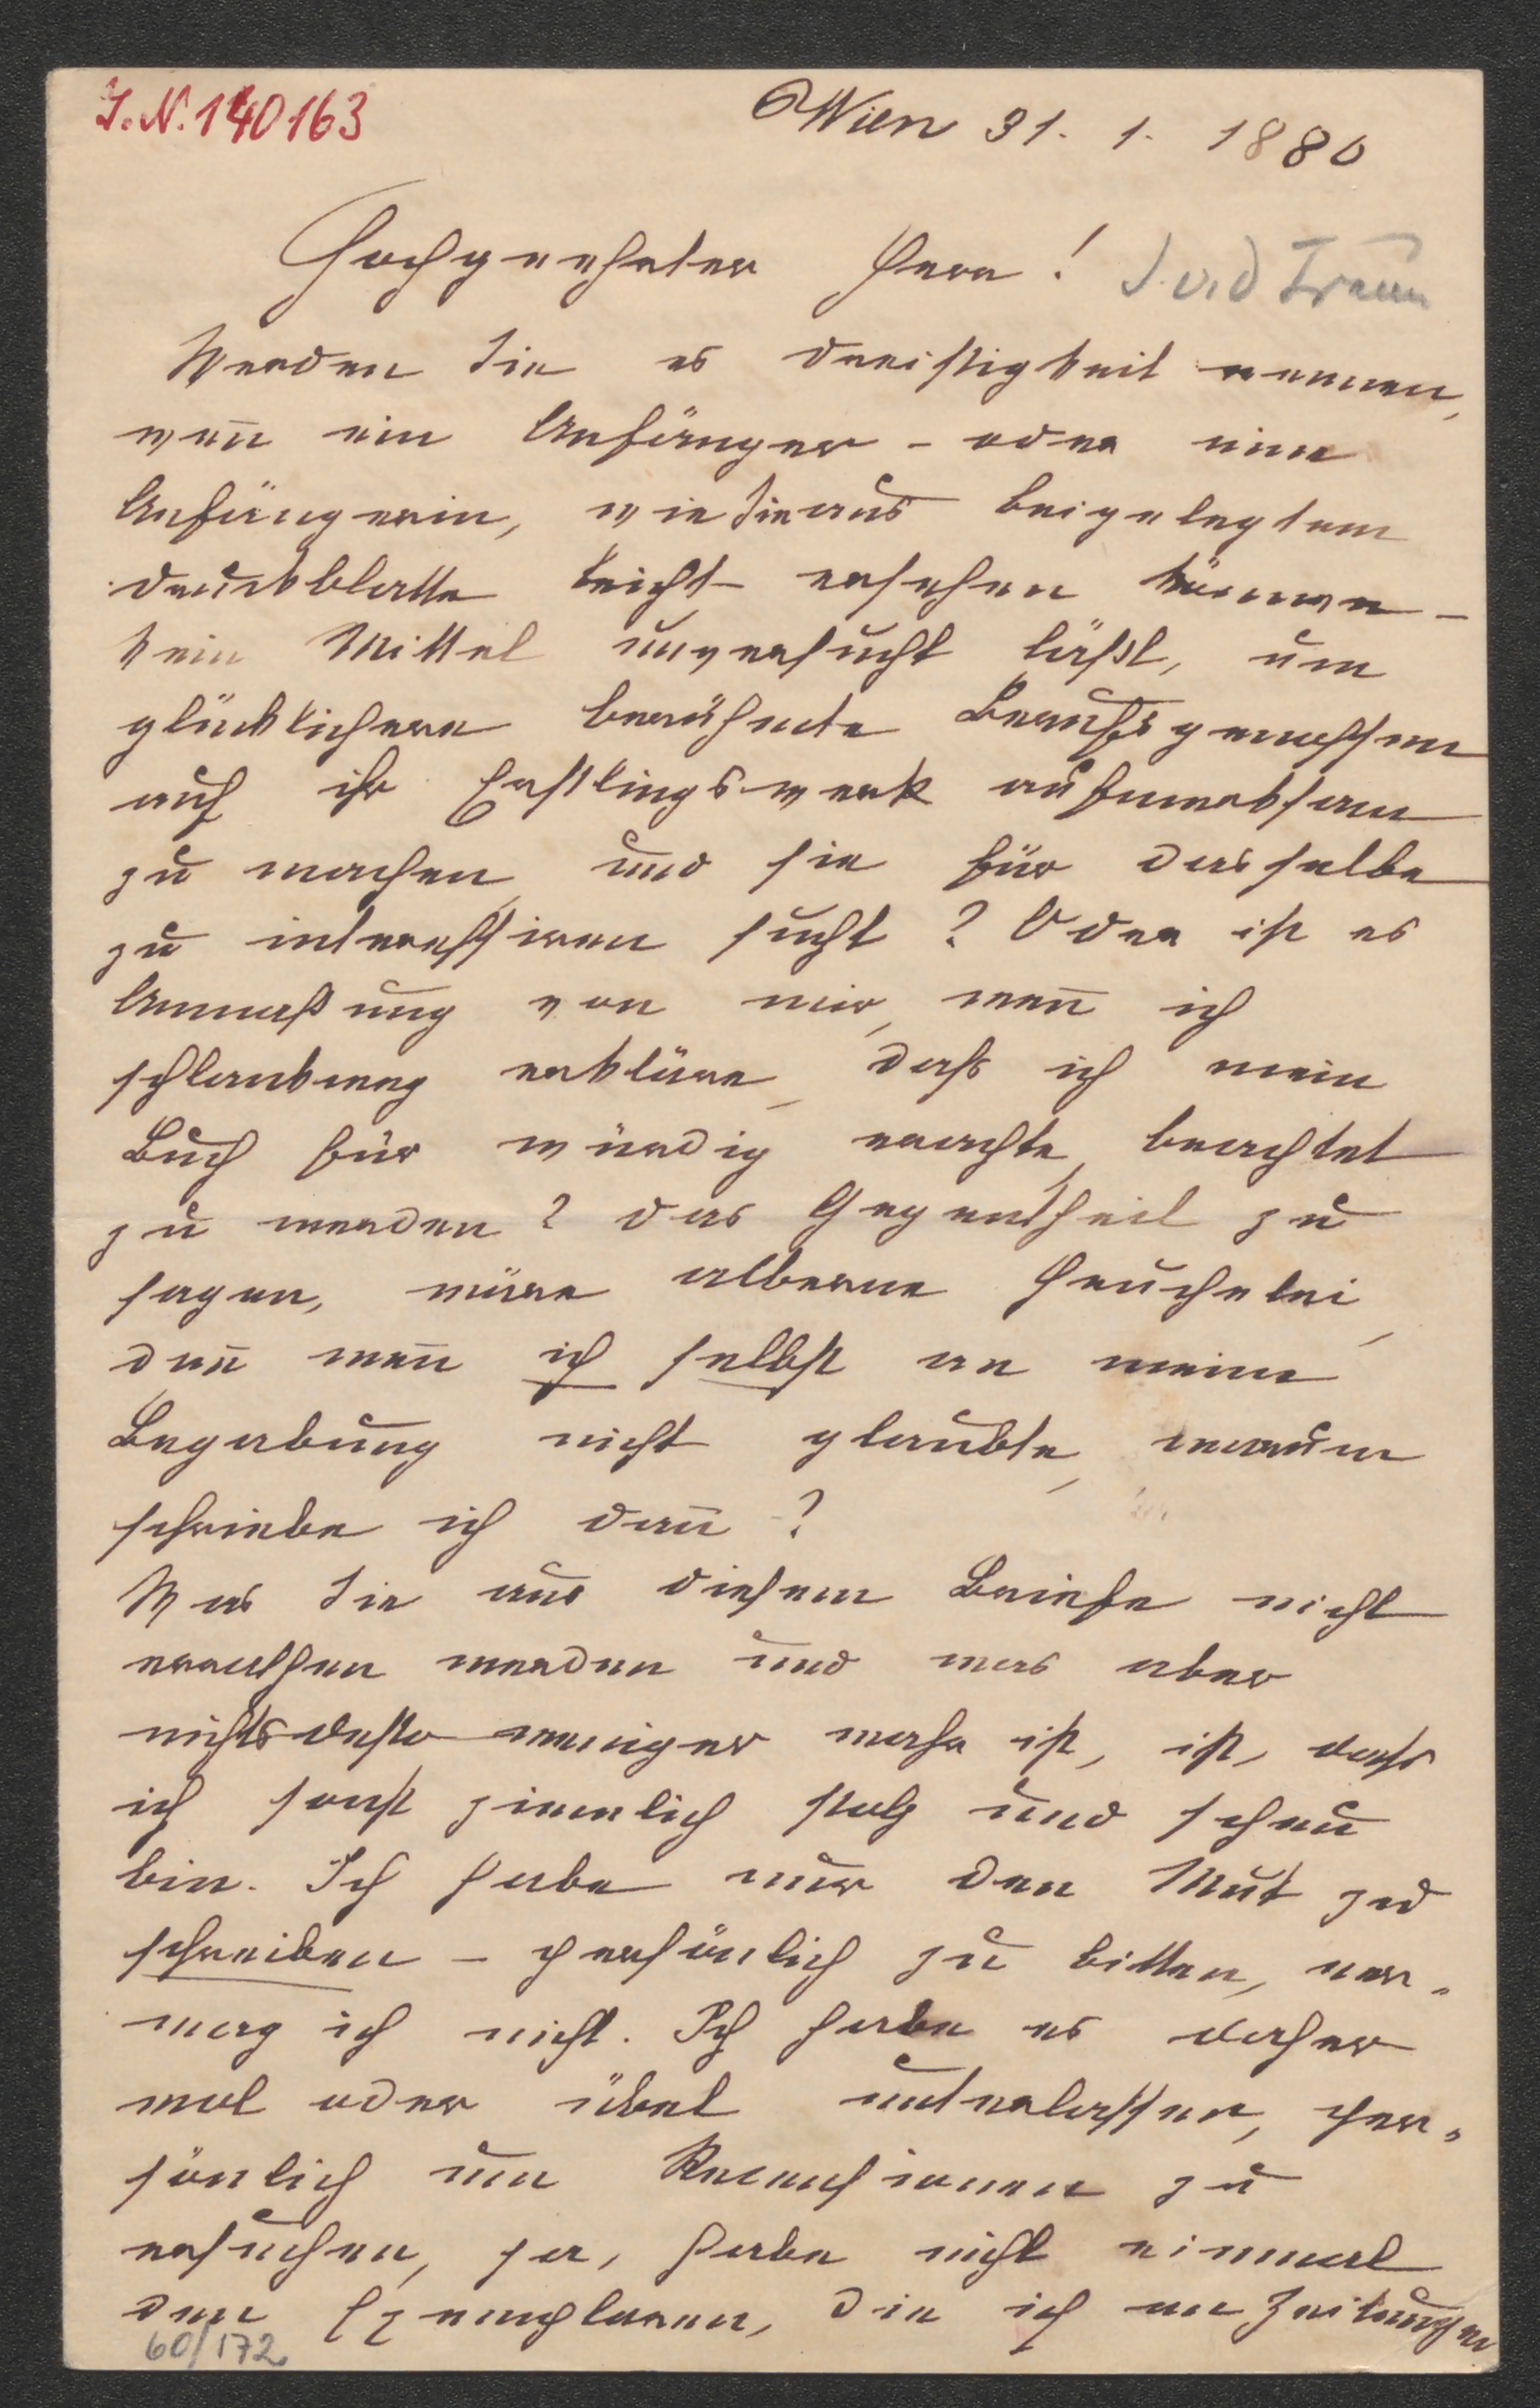 J.N. 140163
Wien 31. 1. 1880
Hochgeehrter Herr!
J. v. d Traun
Werden Sie es Dreistigkeit nennen,
weñ ein Anfänger – oder eine
Anfängerin, wie Sie aus beigelegtem
Druckblatte leicht ersehen können –
kein Mittel unversucht läßt, um
glücklichere berühmte Berufsgenossen
auf ihr Erstlingswerk aufmerksam
zu machen, und sie für dasselbe
zu interessiren sucht? Oder ist es
Anmaßung von mir, weñ ich
schlankweg erkläre, daß ich mein
Buch für würdig erachte, beachtet
zu werden? Das Gegentheil zu
sagen, wäre alberne Heuchelei,
deñ weñ ich selbst an meine
Begabung nicht glaubte, warum
schriebe ich dañ?
Was Sie aus diesem Briefe nicht
errathen werden und was aber
nichtsdestoweniger wahr ist, ist, daß
ich sonst ziemlich stolz und scheu
bin. Ich habe nur den Mut zu
schreiben – persönlich zu bitten, ver-
mag ich nicht. Ich habe es daher
wol oder übel unterlassen, per-
sönlich um Recensionen zu
ersuchen, ja, habe nicht einmal
den Exemplaren, die ich an Zeitungen
60/172